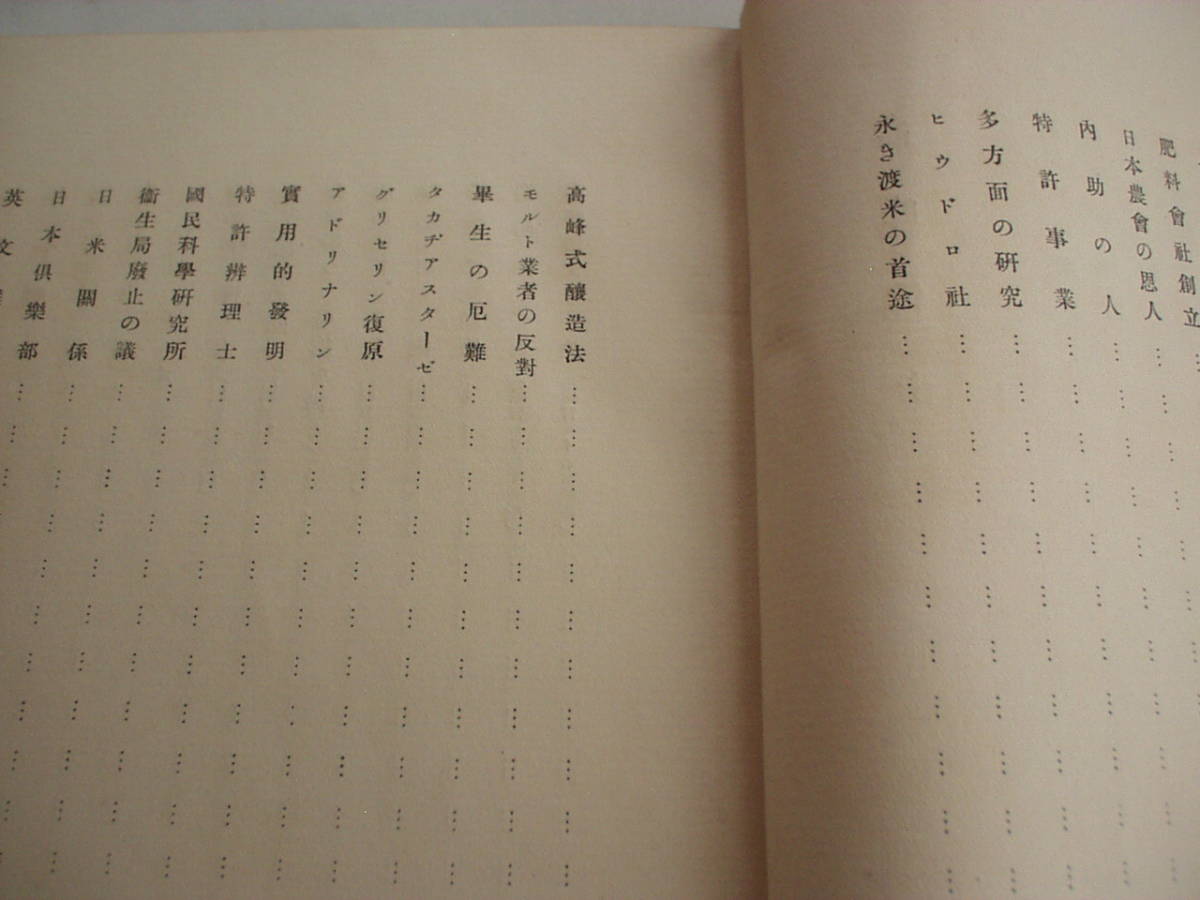 肥料會社創立
日本農會の恩人
內助の人
特許事業
多方面の硏究
ヒウドロ社
永き渡米の首途
高峰式釀造法
モルト業者の反對
畢生の厄難
タカヂアスターゼ
グリセリン復原
アドリナリン
實用的發明
特許辨理士
國民科學硏究所
衞生局廢止の議
日米關係
日本俱樂部
英文